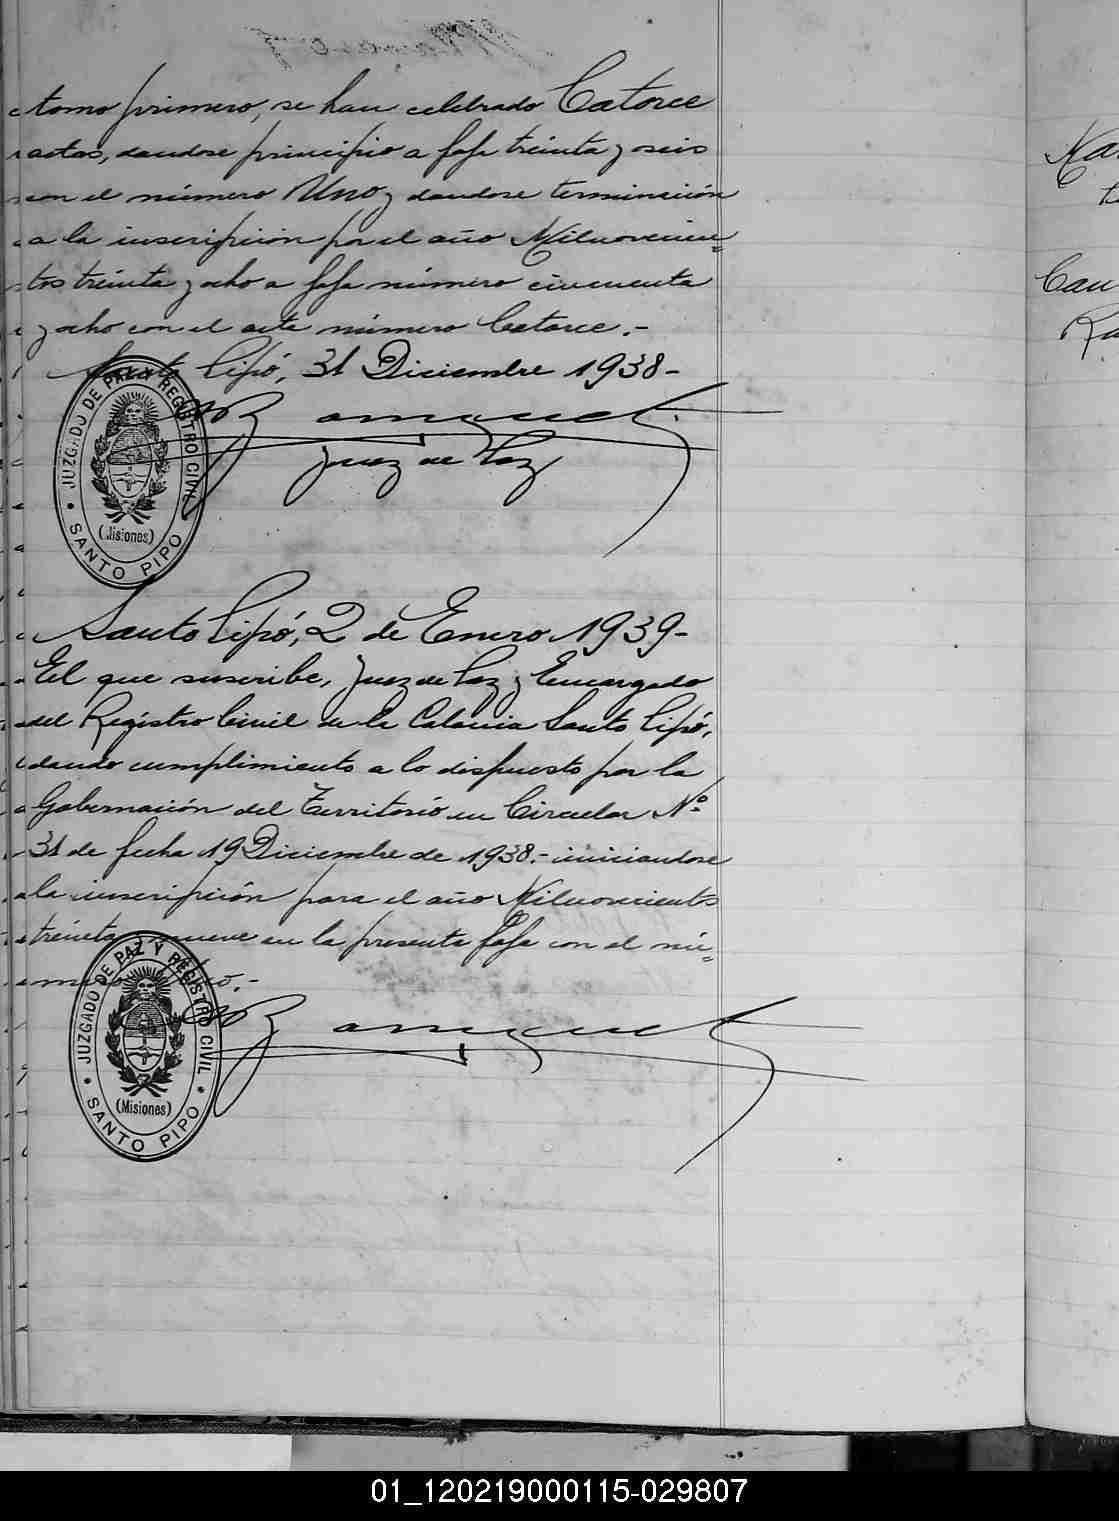 tomo primero, se han celebrado Catorce
actas, dandose principio a foja treinta y seis
con el número Uno y dandose terminación
a la inscripción por el año Milnovecien=
tos treinta y ocho a foja número cincuenta
y ocho con el acta número Catorce.-
Santo Pipó, 31 Diciembre 1938-
Juez de Paz
JUZGADO DE PAZ Y REGISTRO CIVIL
(Misiones)
SANTO PIPO
Santo Pipó, 2 de Enero 1939-
El que suscribe, Juez de Paz y Encargado
del Registro Civil de la Colonia Santo Pipó,
dando cumplimiento a lo dispuesto por la
Gobernación del Territorio en Circular Nº
31 de fecha 19 Diciembre de 1938.- iniciandose
la inscripción para el año Milnovecientos
treinta y nueve en la presente foja con el nú=
mero Uno.-
JUZGADO DE PAZ Y REGISTRO CIVIL
(Misiones)
SANTO PIPO
01_120219000115-029807